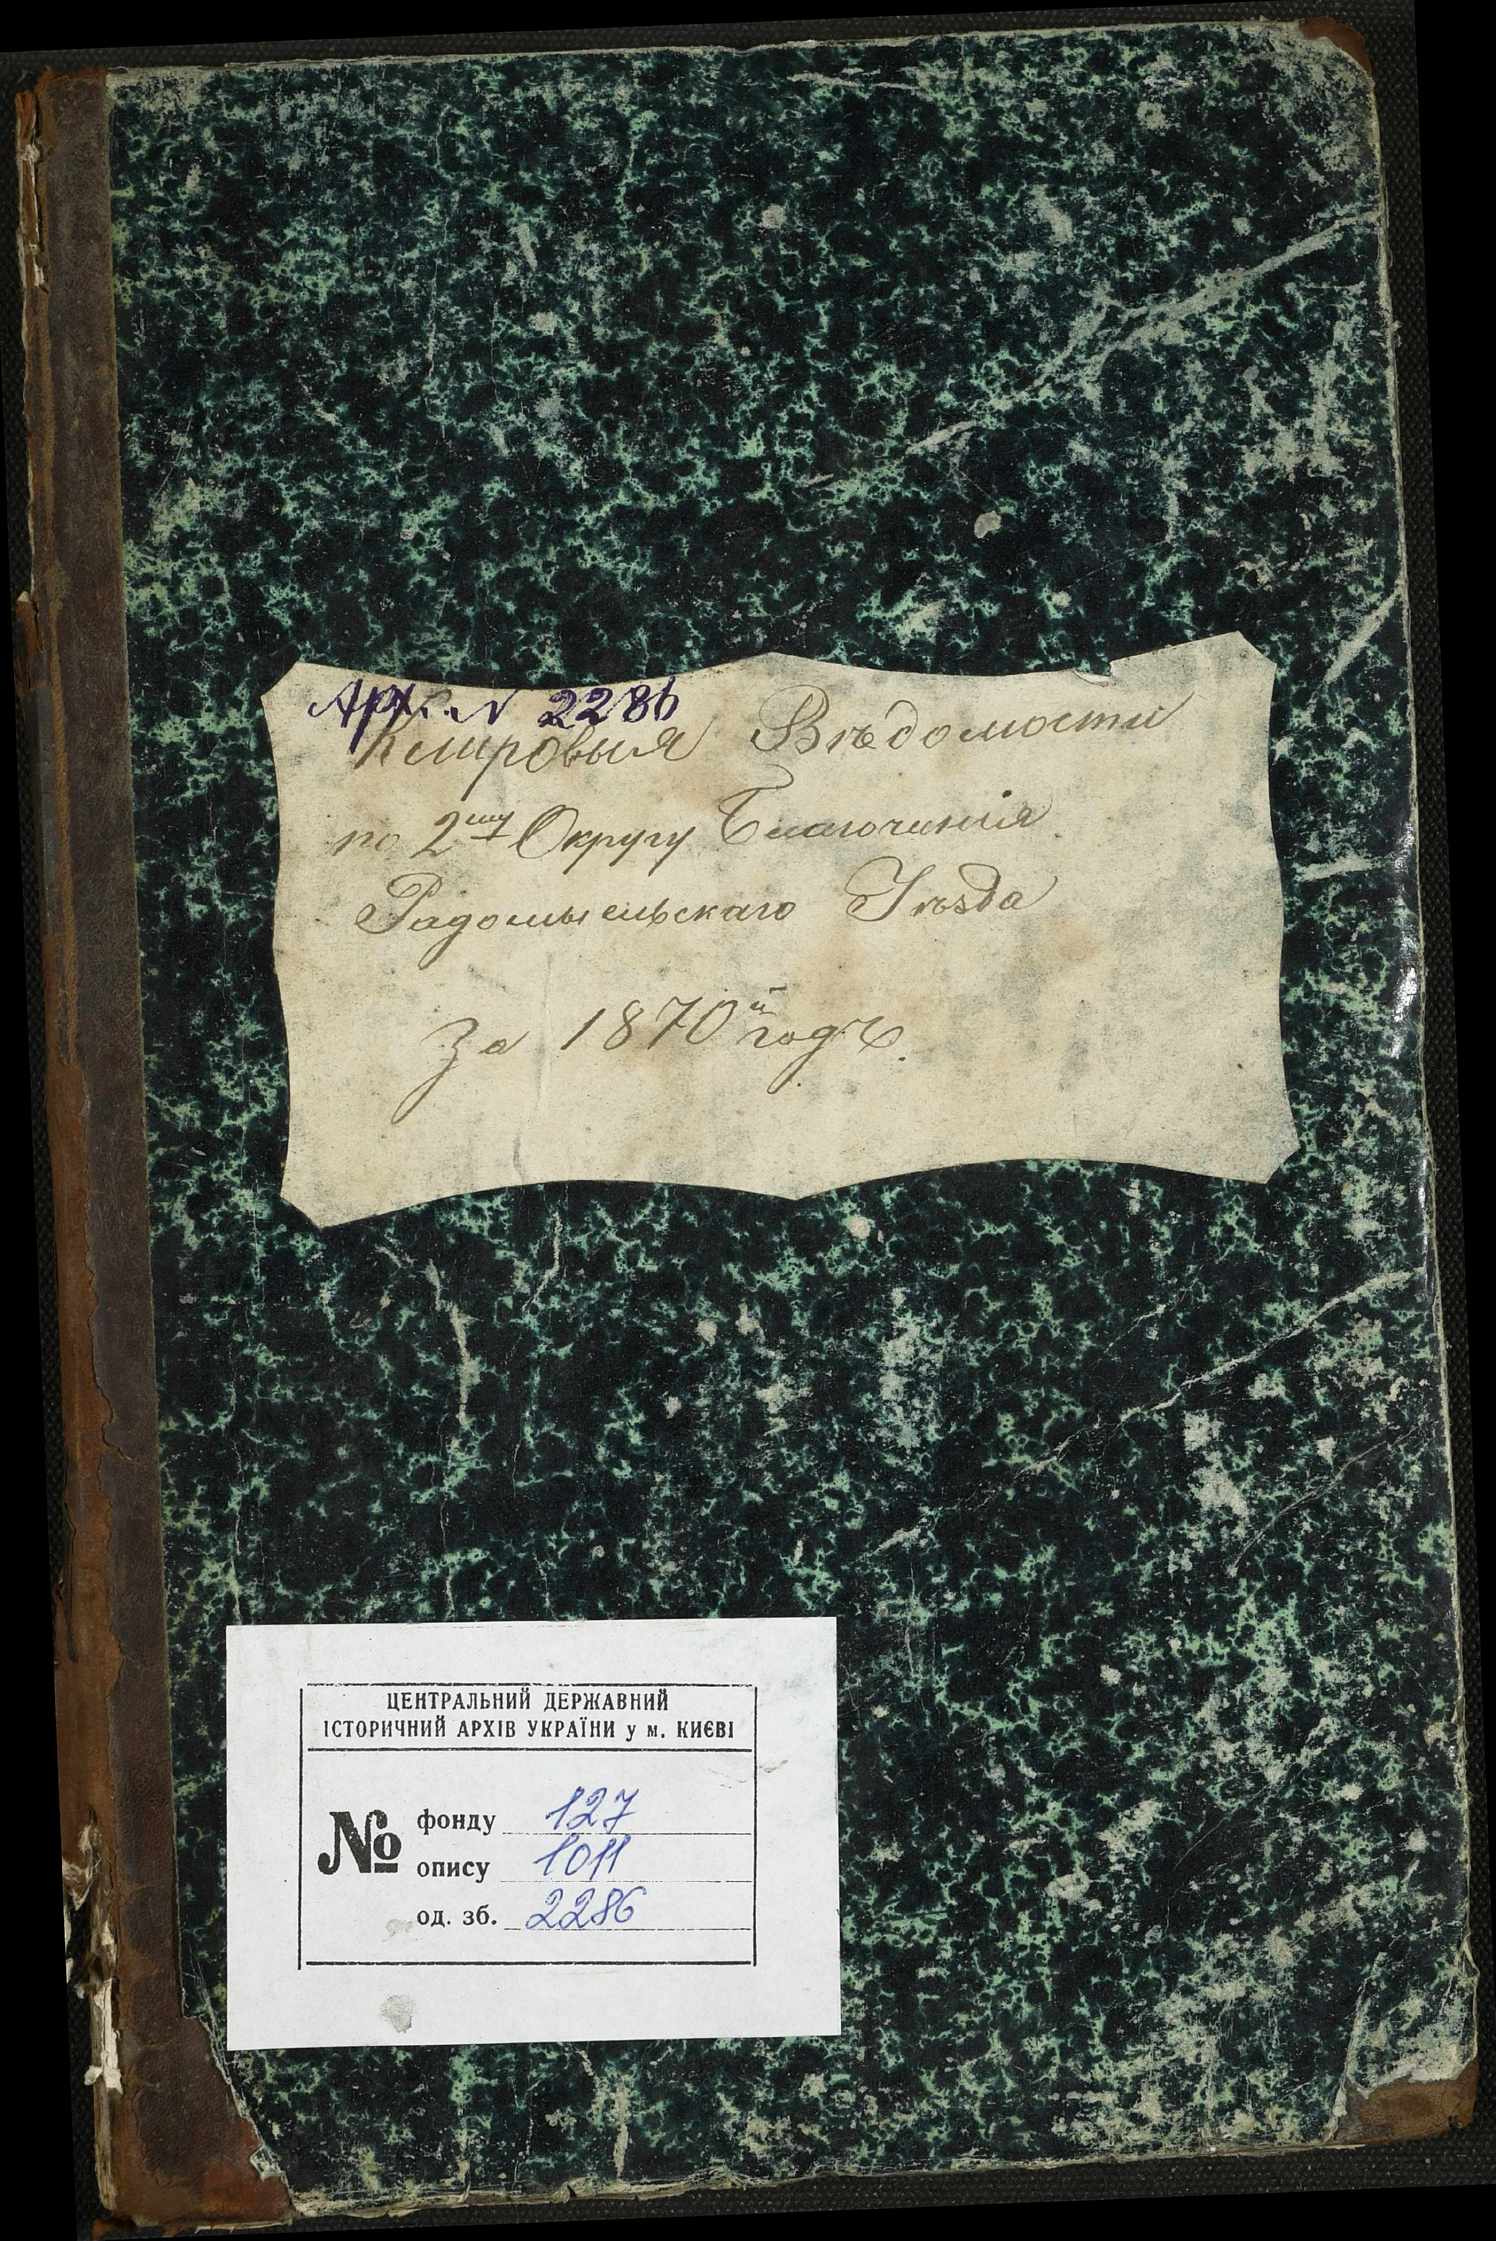 Арх. № 2286
Клировыя Вѣдомости
по 2му Округу Благочинія
Радомысльскаго Уѣзда
За 1870й годъ.
ЦЕНТРАЛЬНИЙ ДЕРЖАВНИЙ
ІСТОРИЧНИЙ АРХІВ УКРАЇНИ у м. КИЄВІ
№ фонду 127
опису 1011
од. зб. 2286